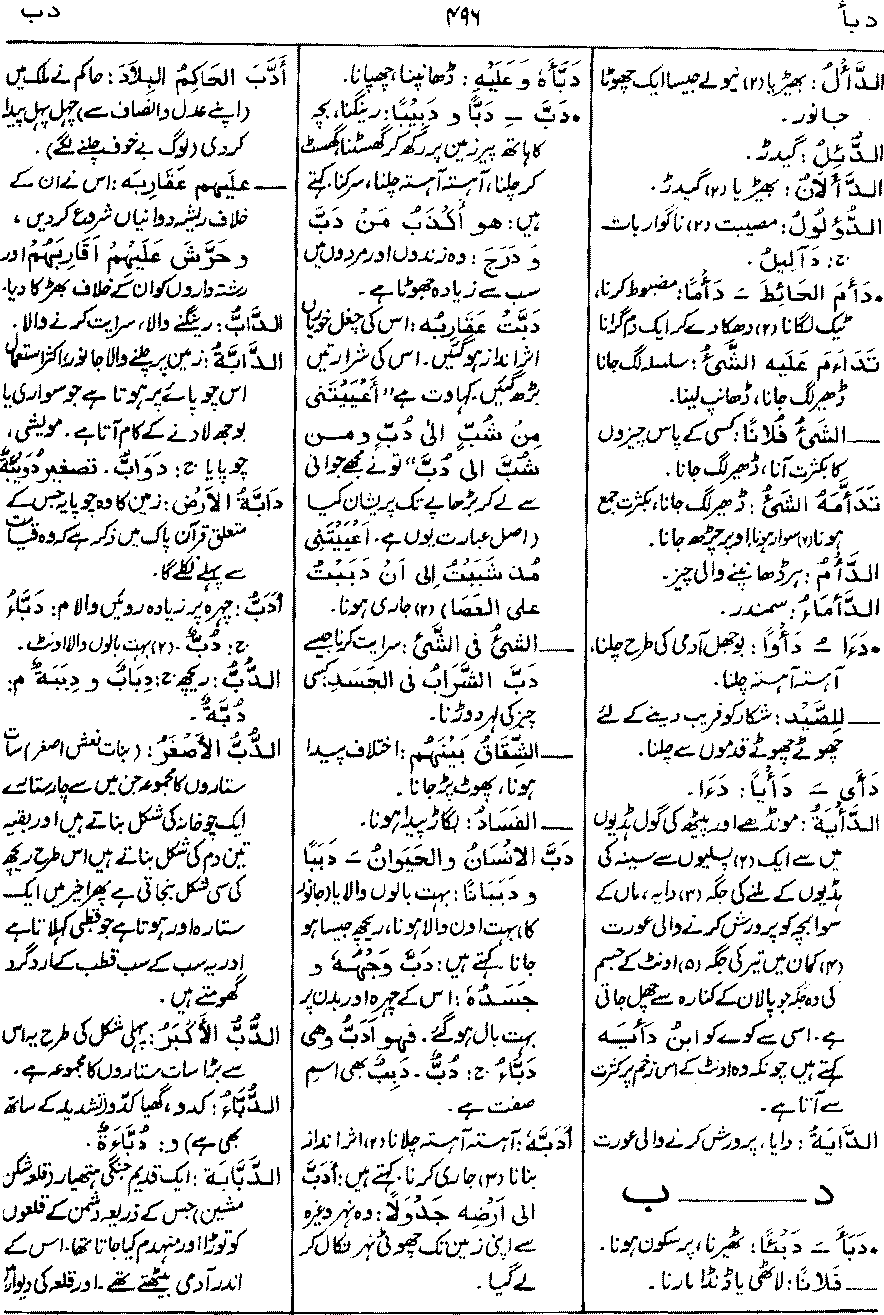 دبأ
۴۹۶
دب
الدَّأْلُ: بھیڑیا (۲) نیولے جیسا ایک چھوٹا
جانور۔
الدُّئِلُ: گیدڑ۔
الدَّأَلَانُ: بھیڑیا (۲) گیدڑ۔
الدُّؤْلُولُ: مصیبت (۲) ناگوار بات
ج: دَآلِیلُ۔
•دَأَمَ الحَائِطَ ـَ دَأْمًا: مضبوط کرنا،
ٹیک لگانا (۲) دھکا دے کر ایک دم گرانا
تَدَاءَمَ عَلَیه الشَّیْءُ: سلسلہ لگ جانا
ڈھیر لگ جانا، ڈھانپ لینا۔
ــــ الشَّیْءُ فُلَانًا: کسی کے پاس چیزوں
کا بکثرت آنا، ڈھیر لگ جانا۔
تَدَأَّمَهُ الشَّیْءُ: ڈھیر لگ جانا، بکثرت جمع
ہونا (۲) سوار ہونا اوپر چڑھ جانا۔
الدَّأْمُ: ہر ڈھانپنے والی چیز۔
الدَّأْمَاءُ: سمندر۔
•دَءَا ـُ دَأْوًا: بوجھل آدمی کی طرح چلنا،
آہستہ آہستہ چلنا۔
ــــ لِلصَّیْدِ: شکار کو فریب دینے کے لئے
چھوٹے چھوٹے قدموں سے چلنا۔
دَأَى ـَ دَأْیًا: دَءَا۔
الدَّأْیَةُ: مونڈھے اور پیٹھ کی گول ہڈیوں
میں سے ایک (۲) پسلیوں سے سینہ کی
ہڈیوں کے ملنے کی جگہ (۳) دایہ، ماں کے
سوا بچہ کو پرورش کرنے والی عورت
(۴) کمان میں تیر کی جگہ (۵) اونٹ کے جسم
کی وہ جگہ جو پالان کے کنارہ سے چھل جاتی
ہے۔ اسی سے کوے کو ابنُ دَأْیَه
کہتے ہیں چونکہ وہ اونٹ کے اس زخم پر کثرت
سے آتا ہے۔
الدَّایَةُ: دایا، پرورش کرنے والی عورت
د ــــــ ب
•دَبَأَ ـَ دَبْئًا: ٹھیرنا، پرسکون ہونا۔
ــــ فُلَانًا: لاٹھی یا ڈنڈا مارنا۔
دَبَّأَهُ وَعَلَیْهِ: ڈھانپنا، چھپانا۔
•دَبَّ ـِ دَبًّا و دَبِیْبًا: رینگنا، بچہ
کا ہاتھ پیر زمین پر رکھ کر گھسٹنا، گھسٹ
کر چلنا، آہستہ آہستہ چلنا، سرکنا۔ کہتے
ہیں: هو أَكْذَبُ مَنْ دَبَّ
وَ دَرَجَ: وہ زندوں اور مردوں میں
سب سے زیادہ جھوٹا ہے۔
دَبَّتْ عَقَارِبُه: اس کی چغل خوریاں
اثر انداز ہوگئیں۔ اس کی شرارتیں
بڑھ گئیں۔ کہاوت ہے "أَعْیَیْتَنی
مِنْ شُبٍّ الی دُبٍّ و من
شُبَّ الی دُبَّ" تونے مجھے جوانی
سے لے کر بڑھاپے تک پریشان کیا
(اصل عبارت یوں ہے۔ أَعْیَیْتَنی
مُذْ شَبَبْتُ إلی أَنْ دَبَبْتُ
علی العَصَا) (۲) جاری ہونا۔
ــــ الشَّیْءُ فی الشَّیْءِ: سرایت کرنا جیسے
دَبَّ الشَّرَابُ فی الجَسَدِ: کسی
چیز کی لہر دوڑنا۔
ــــ الشِّقَاقُ بَیْنَهُم: اختلاف پیدا
ہونا، پھوٹ پڑجانا۔
ــــ الفَسَادُ: بگاڑ پیدا ہونا۔
دَبَّ الإنْسَانُ والحَیَوانُ ـَ دَبَبًا
و دَبَبَانًا: بہت بالوں والا یا (جانور
کا) بہت اون والا ہونا، ریچھ جیسا ہو
جانا کہتے ہیں: دَبَّ وَجْهُهُ و
جَسَدُهُ: اس کے چہرہ اور بدن پر
بہت بال ہوگئے۔ فهو أَدَبُّ وهی
دَبَّاءُ ج: دُبٌّ۔ دَبِبٌ بھی اسم
صفت ہے۔
أَدَبَّهُ: آہستہ آہستہ چلانا (۲) اثر انداز
بنانا (۳) جاری کرنا۔ کہتے ہیں: أَدَبَّ
الی أَرْضِه جَدْوَلًا: وہ نہر وغیرہ
سے اپنی زمین تک چھوٹی نہر نکال کر
لے گیا۔
أَدَبَّ الحَاكِمُ البِلَادَ: حاکم نے ملک میں
(اپنے عدل و انصاف سے) چہل پہل پیدا
کردی (لوگ بے خوف چلنے لگے)۔
ــــ علیهم عَقَارِبَه: اس نے ان کے
خلاف ریشہ دوانیاں شروع کردیں،
و حَرَّشَ عَلَیْهِمْ أقَارِبَهُمْ اور
رشتہ داروں کو ان کے خلاف بھڑکا دیا۔
الدَّابُّ: رینگنے والا، سرایت کرنے والا۔
الدَّابَّةُ: زمین پر چلنے والا جانور، اکثر استعمال
اس چوپائے پر ہوتا ہے جو سواری یا
بوجھ لادنے کے کام آتا ہے۔ مویشی،
چوپایا ج: دَوَابُّ۔ تصغیر دُوَیْبَّةٌ
دَابَّةُ الأرْضِ: زمین کا وہ چوپایہ جس کے
متعلق قرآن پاک میں ذکر ہے کہ وہ قیامت
سے پہلے نکلے گا۔
أَدَبُّ: چہرہ پر زیادہ روئیں والا م: دَبَّاءُ
ج: دُبٌّ۔ (۲) بہت بالوں والا اونٹ۔
الدُّبُّ: ریچھ ج: دِبَابٌ و دِبَبَةٌ م:
دُبَّةٌ۔
الدُّبُّ الأَصْغَرُ: (بنات نعش اصغر) سات
ستاروں کا مجموعہ جن میں سے چار ستارے
ایک چوخانہ کی شکل بناتے ہیں اور بقیہ
تین دم کی شکل بناتے ہیں اس طرح ریچھ
کی سی شکل بنجاتی ہے پھر اخیر میں ایک
ستارہ اور ہوتا ہے جو قطبی کہلاتا ہے
اور یہ سب کے سب قطب کے ارد گرد
گھومتے ہیں۔
الدُّبُّ الأَكْبَرُ: پہلی شکل کی طرح یہ اس
سے بڑا سات ستاروں کا مجموعہ ہے۔
الدُّبَّاءُ: کدو، گھیا کدو (تشدید کے ساتھ
بھی ہے) و: دُبَّاءَةٌ۔
الدَّبَّابَة: ایک قدیم جنگی ہتھیار (قلعہ شکن
مشین) جس کے ذریعہ دشمن کے قلعوں
کو توڑا اور منہدم کیا جاتا تھا۔ اس کے
اندر آدمی بیٹھتے تھے۔ اور قلعہ کی دیوار